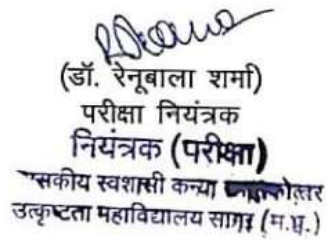 (डॉ. रेनूबाला शर्मा)
परीक्षा नियंत्रक
नियंत्रक (परीक्षा)
सकीय स्वशासी कन्या
उत्कृष्टता महाविद्यालय सागर (म.प्र.)